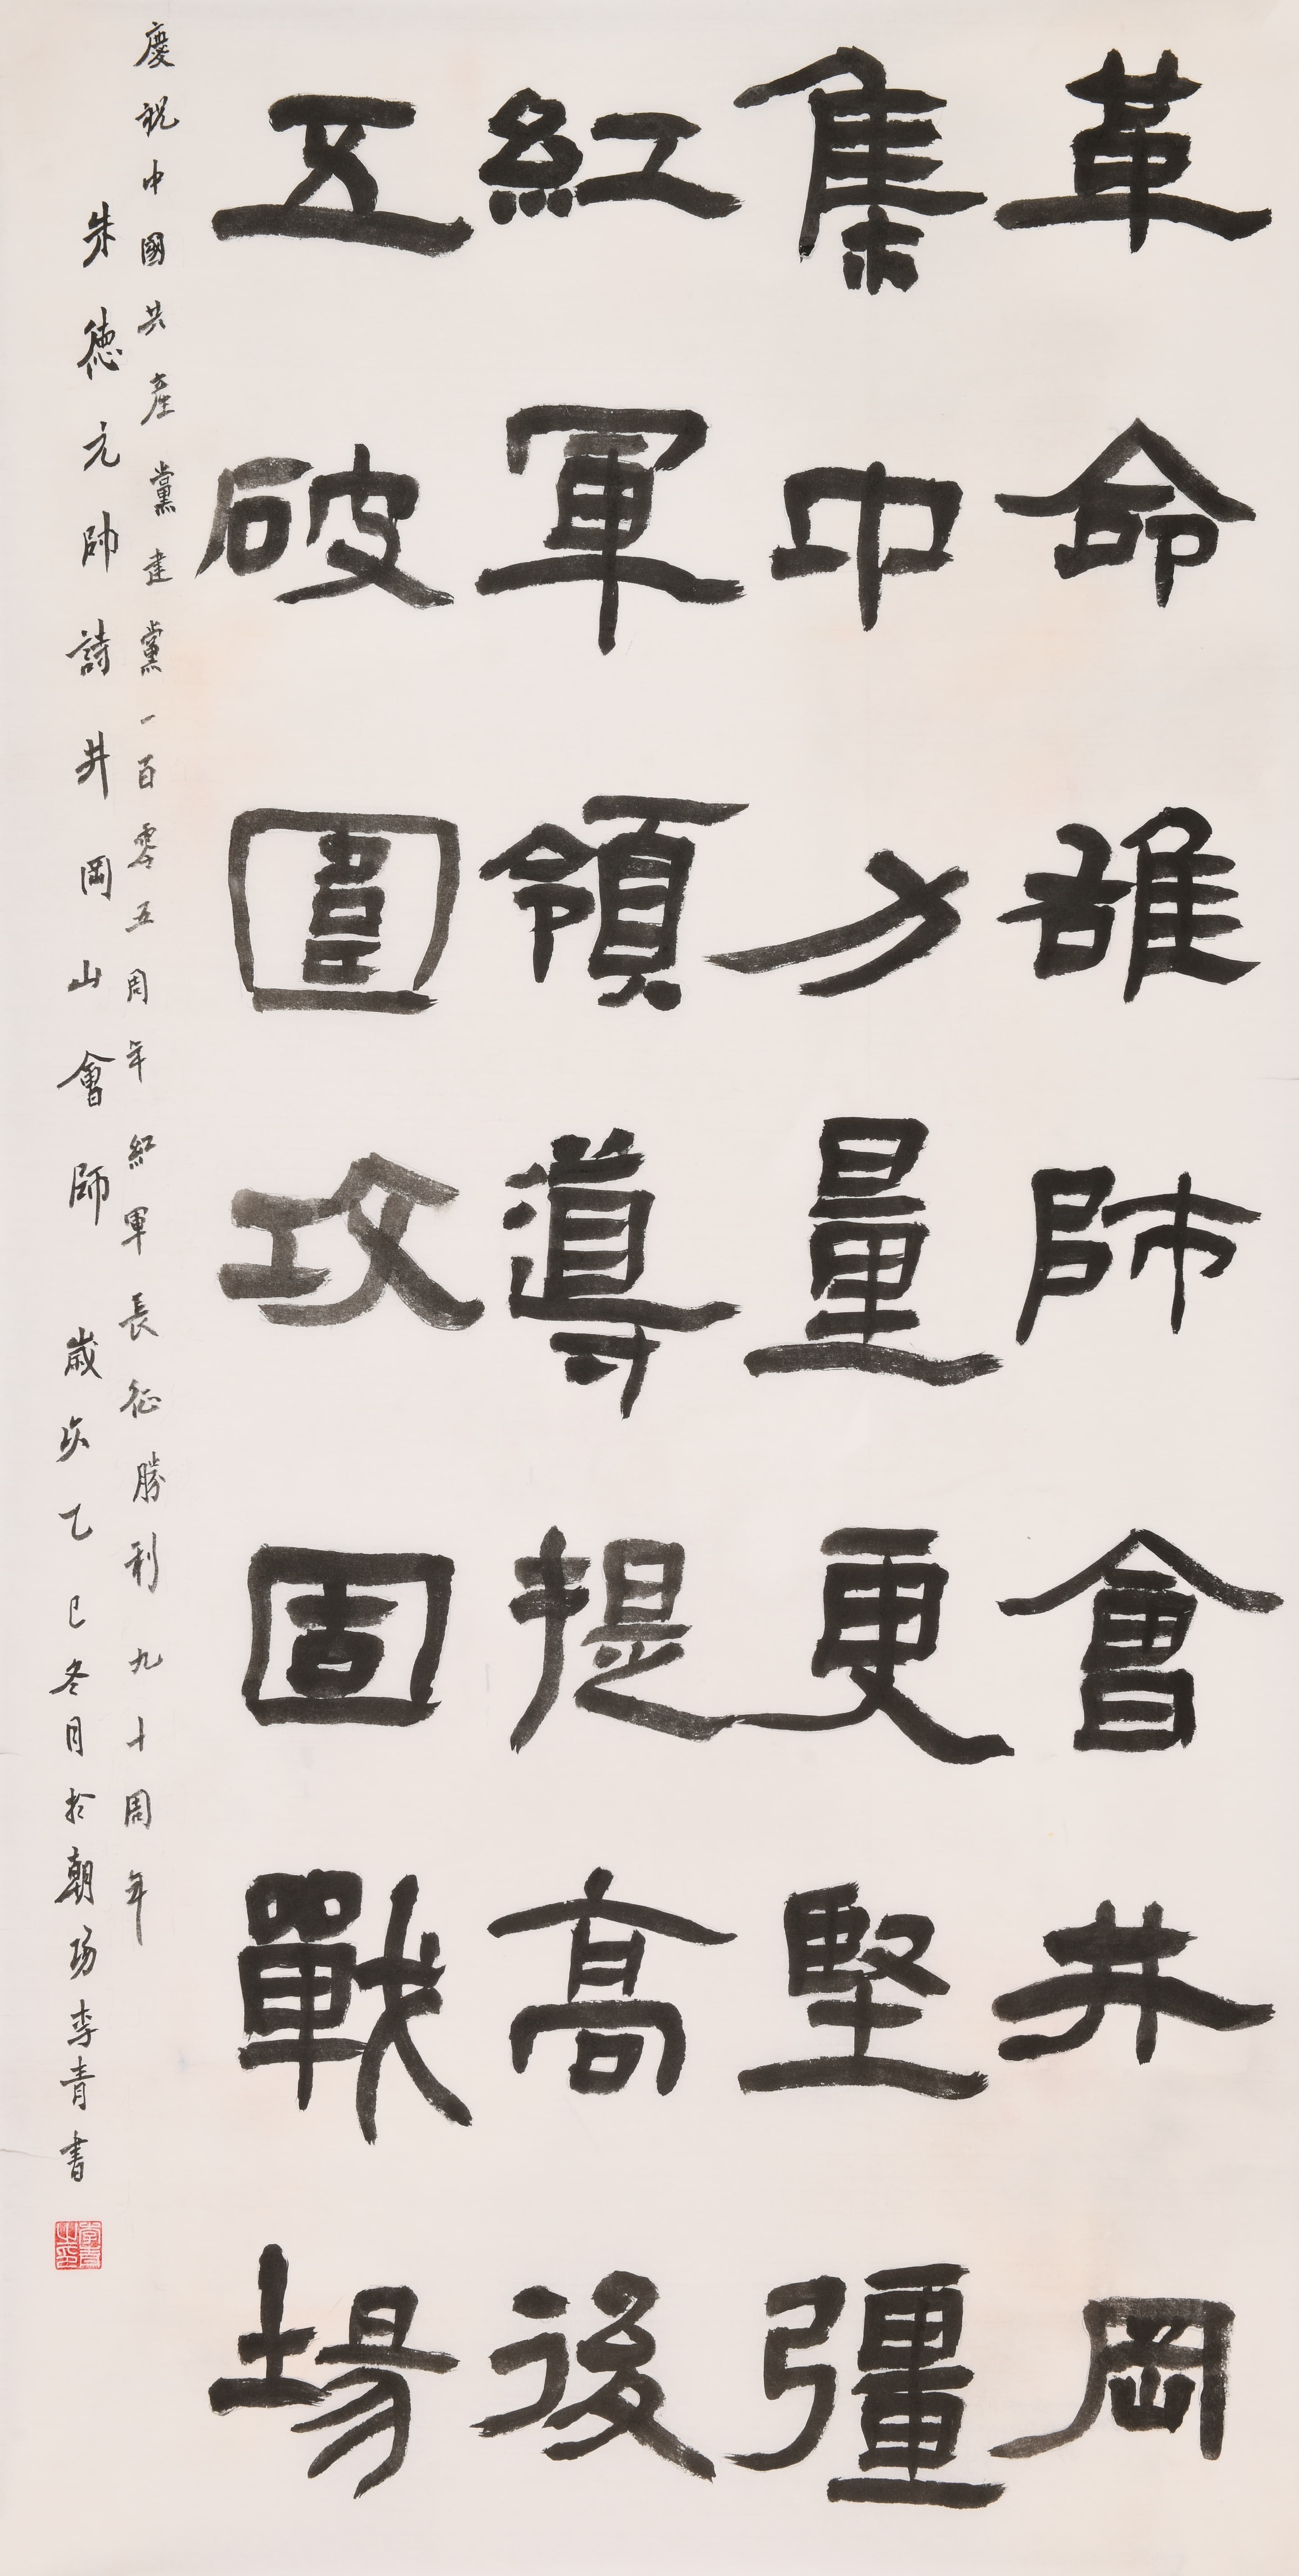 革命雄師會井岡
集中力量更堅彊
紅軍領導提高後
五破圍攻固戰場
慶祝中國共產黨建黨一百零五周年紅軍長征勝利九十周年
朱德元帥詩井岡山會師 歲次乙巳冬月於朝陽李青書
李青之印